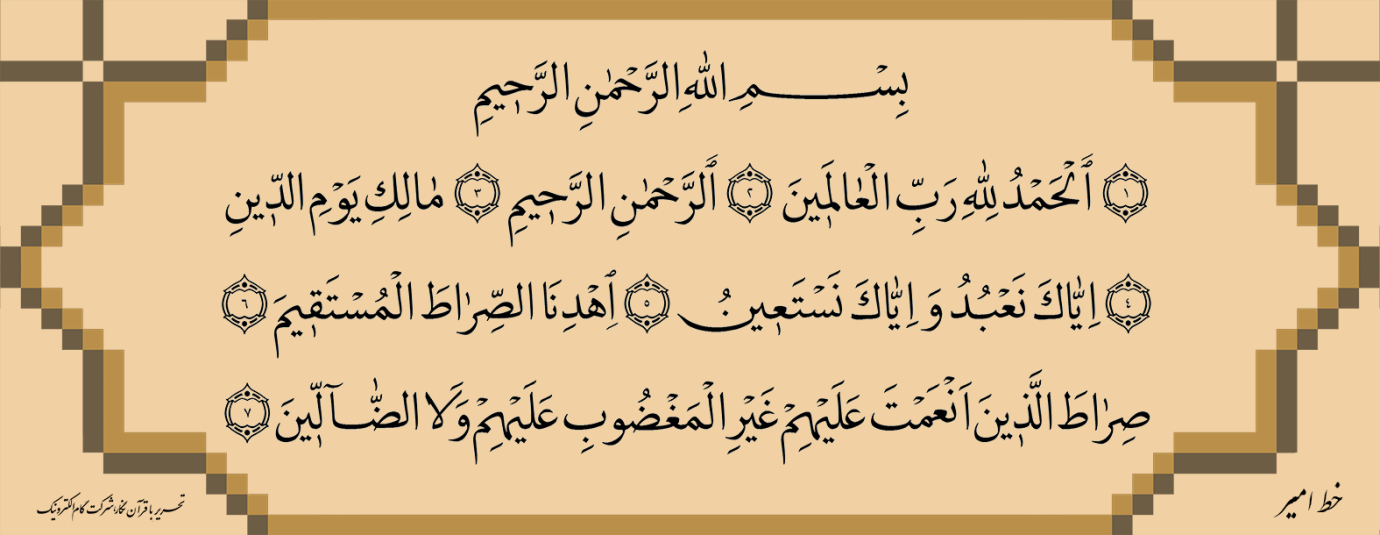 بِسْمِ اللّٰهِ الرَّحْمٰنِ الرَّحٖيمِ
﴿١﴾ اَلْحَمْدُ لِلّٰهِ رَبِّ الْعٰالَمٖينَ ﴿٢﴾ اَلرَّحْمٰنِ الرَّحٖيمِ ﴿٣﴾ مٰالِكِ يَوْمِ الدّٖينِ
﴿٤﴾ اِيّٰاكَ نَعْبُدُ وَ اِيّٰاكَ نَسْتَعٖينُ ﴿٥﴾ اِهْدِنَا الصِّرٰاطَ الْمُسْتَقٖيمَ ﴿٦﴾
صِرٰاطَ الَّذٖينَ اَنْعَمْتَ عَلَيْهِمْ غَيْرِ الْمَغْضُوبِ عَلَيْهِمْ وَلَا الضّٰٓالّٖينَ ﴿٧﴾
خط امیر
تحریر با قرآن نگار، شرکت گام الکترونیک